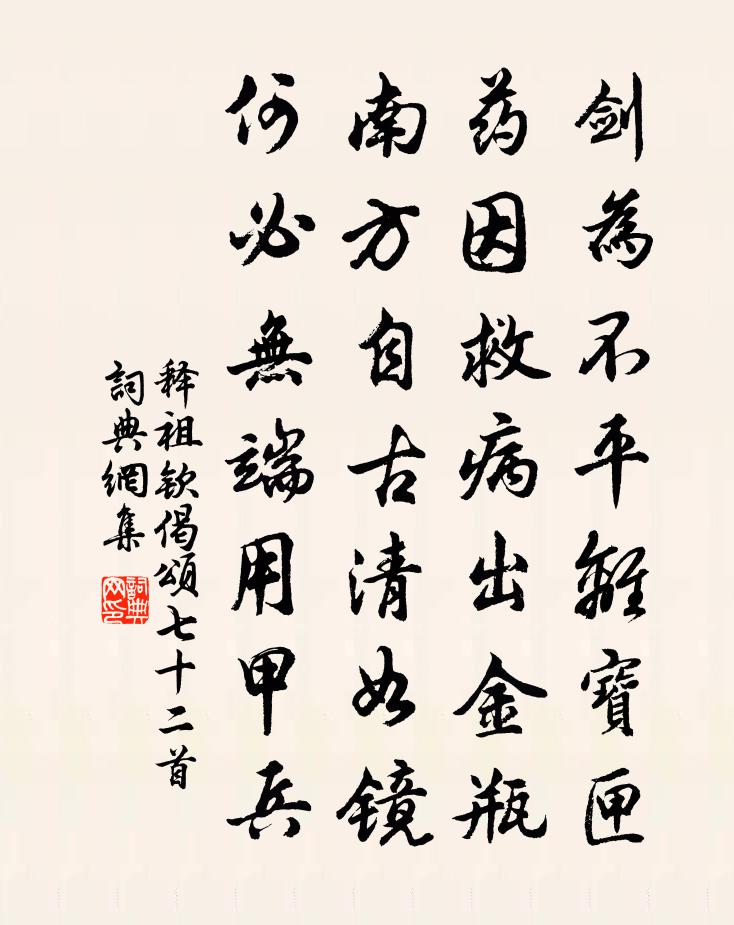 剑為不平離寶匣
药因救病出金瓶
南方自古清如镜
何必無端用甲兵
释祖钦偈頌七十二首
詞典網集
詞典
网印